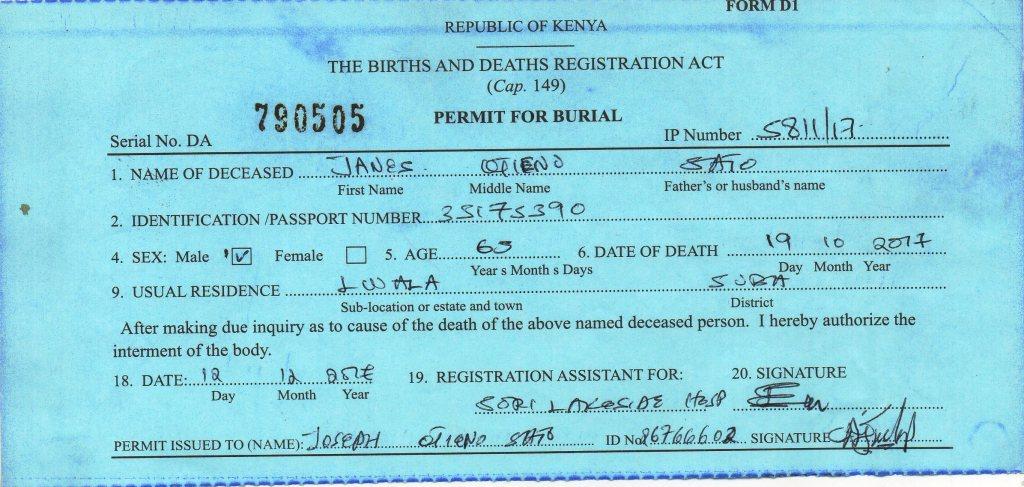 FORM D1
REPUBLIC OF KENYA
THE BIRTHS AND DEATHS REGISTRATION ACT
(Cap. 149)
PERMIT FOR BURIAL
Serial No. DA 790505 IP Number 5811/17
1. NAME OF DECEASED JANES OTIENO SATO
First Name Middle Name Father's or husband's name
2. IDENTIFICATION /PASSPORT NUMBER 35175390
4. SEX: Male ☑ Female ☐ 5. AGE 65 6. DATE OF DEATH 19 10 2017
Year s Month s Days Day Month Year
9. USUAL RESIDENCE LWALA SUBA
Sub-location or estate and town District
After making due inquiry as to cause of the death of the above named deceased person. I hereby authorize the
interment of the body.
18. DATE: 12 12 19. REGISTRATION ASSISTANT FOR: 20. SIGNATURE
Day Month Year
SORI LAKESIDE HOSP
PERMIT ISSUED TO (NAME): JOSEPH OTIENO SATO ID No 26766602 SIGNATURE